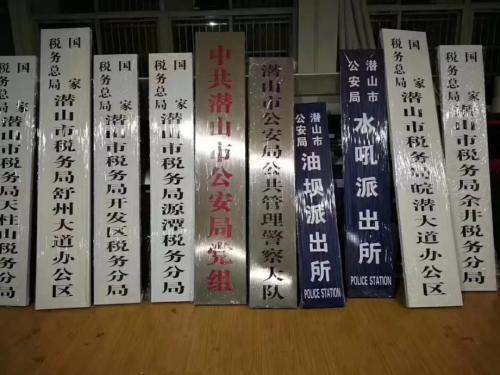 国家税务总局 潜山市税务局天柱山税务分局
国家税务总局 潜山市税务局舒州大道办公区
国家税务总局 潜山市税务局开发区税务分局
国家税务总局 潜山市税务局源潭税务分局
中共潜山市公安局党组
潜山市公安局公共管理警察大队
潜山市公安局 油坝派出所
POLICE STATION
潜山市公安局 水吼派出所
POLICE STATION
国家税务总局 潜山市税务局皖潜大道办公区
国家税务总局 潜山市税务局余井税务分局